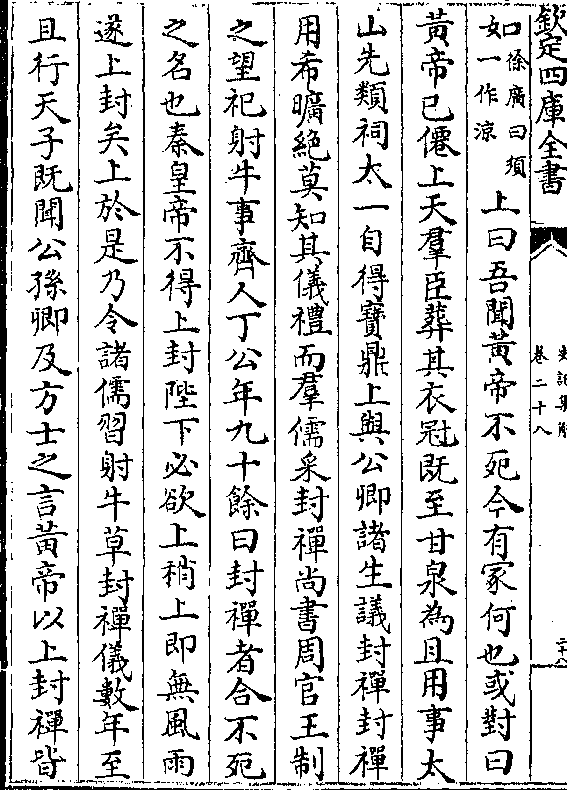 欽定四庫全書
史記集解
卷二十八
如徐廣曰須一作涼上曰吾聞黃帝不死今有冢何也或對曰
黃帝已僊上天羣臣葬其衣冠既至甘泉為且用事太
山先類祠太一自得寶鼎上與公卿諸生議封禪封禪
用希曠絶莫知其儀禮而羣儒采封禪尚書周官王制
之望祀射牛事齊人丁公年九十餘曰封禪者合不死
之名也秦皇帝不得上封陛下必欲上稍上即無風雨
遂上封矣上於是乃令諸儒習射牛草封禪儀數年至
且行天子既聞公孫卿及方士之言黃帝以上封禪皆